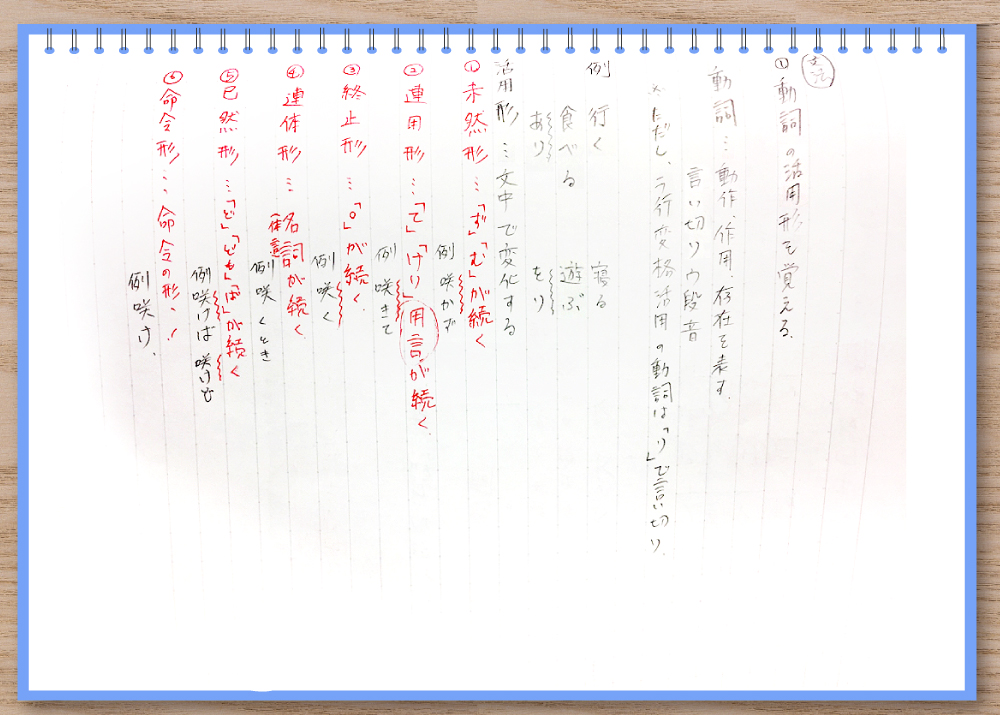 文法
① 動詞の活用形を覚える.
動詞…動作、作用、存在を表す.
言い切りウ段音
※ただし、ラ行変格活用の動詞は「り」で言い切り.
例 行く 寝る
食べる 遊ぶ
あり をり
活用形…文中で変化する
① 未然形…「ず」「む」が続く
例 咲かず
② 連用形…「て」「けり」用言が続く.
例 咲きて
③ 終止形…「。」が続く.
例 咲く
④ 連体形…名詞が続く.
体言
例 咲くとき
⑤ 已然形…「ど」「ども」「ば」が続く
例 咲けば 咲けど
⑥ 命令形…命令の形、!
例 咲け.